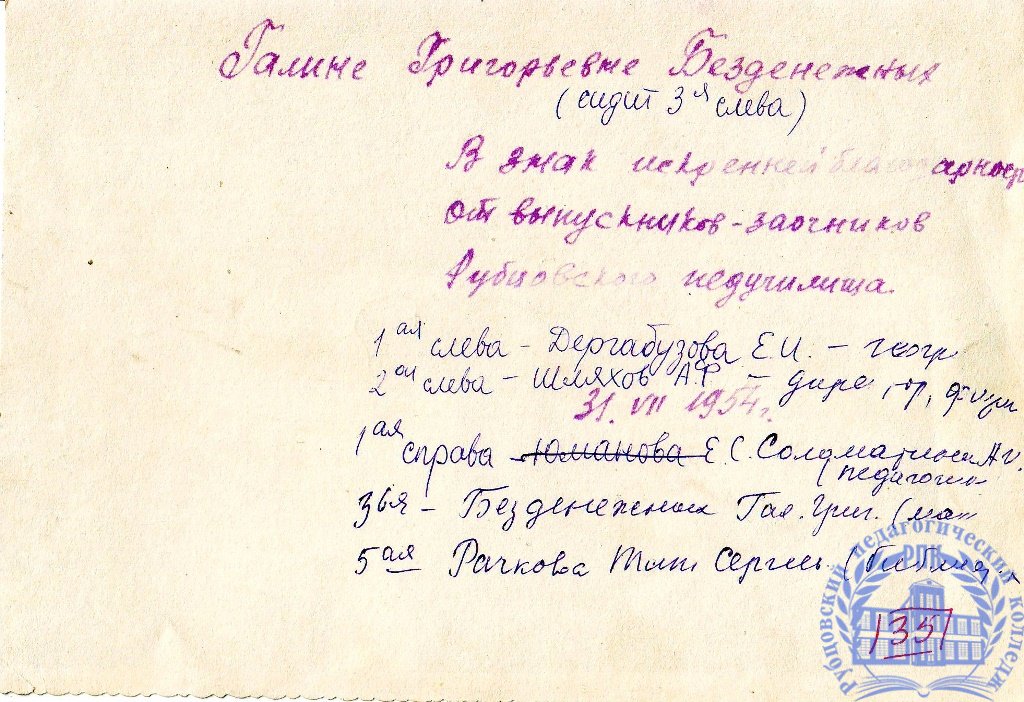 Галине Григорьевне Безденежных
(сидит 3ья слева)
В знак искренней благодарнос
от выпускников-заочников
Рубцовского педучилища.
1ая слева - Дергабузова Е.И. - геогр
2ой слева - Шляхов А.Ф. - дире
31. VII 1954г.
1ая справа Юманова Е.С. А.И.
(педагоги
3ья - Безденежных Гал. Григ. (ма
5ая Рачкова Сергеев. (библ
Рубцовский педагогический колледж
РПК
135